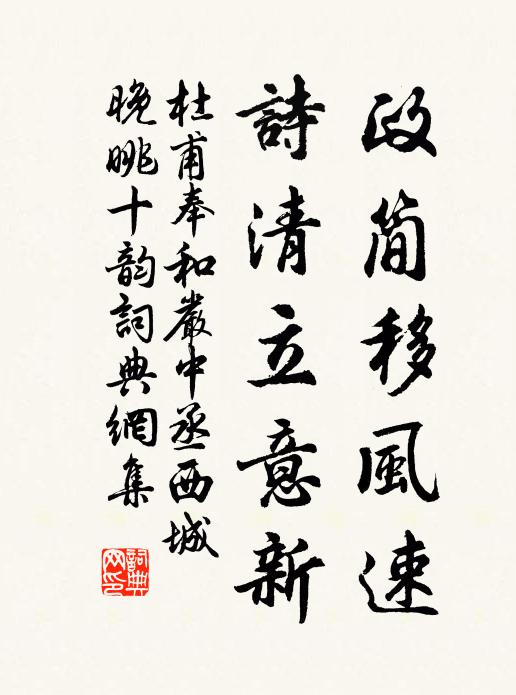 政简移風速
詩清立意新
杜甫奉和嚴中丞西城
晚眺十韵詞典網集
詞典
网印